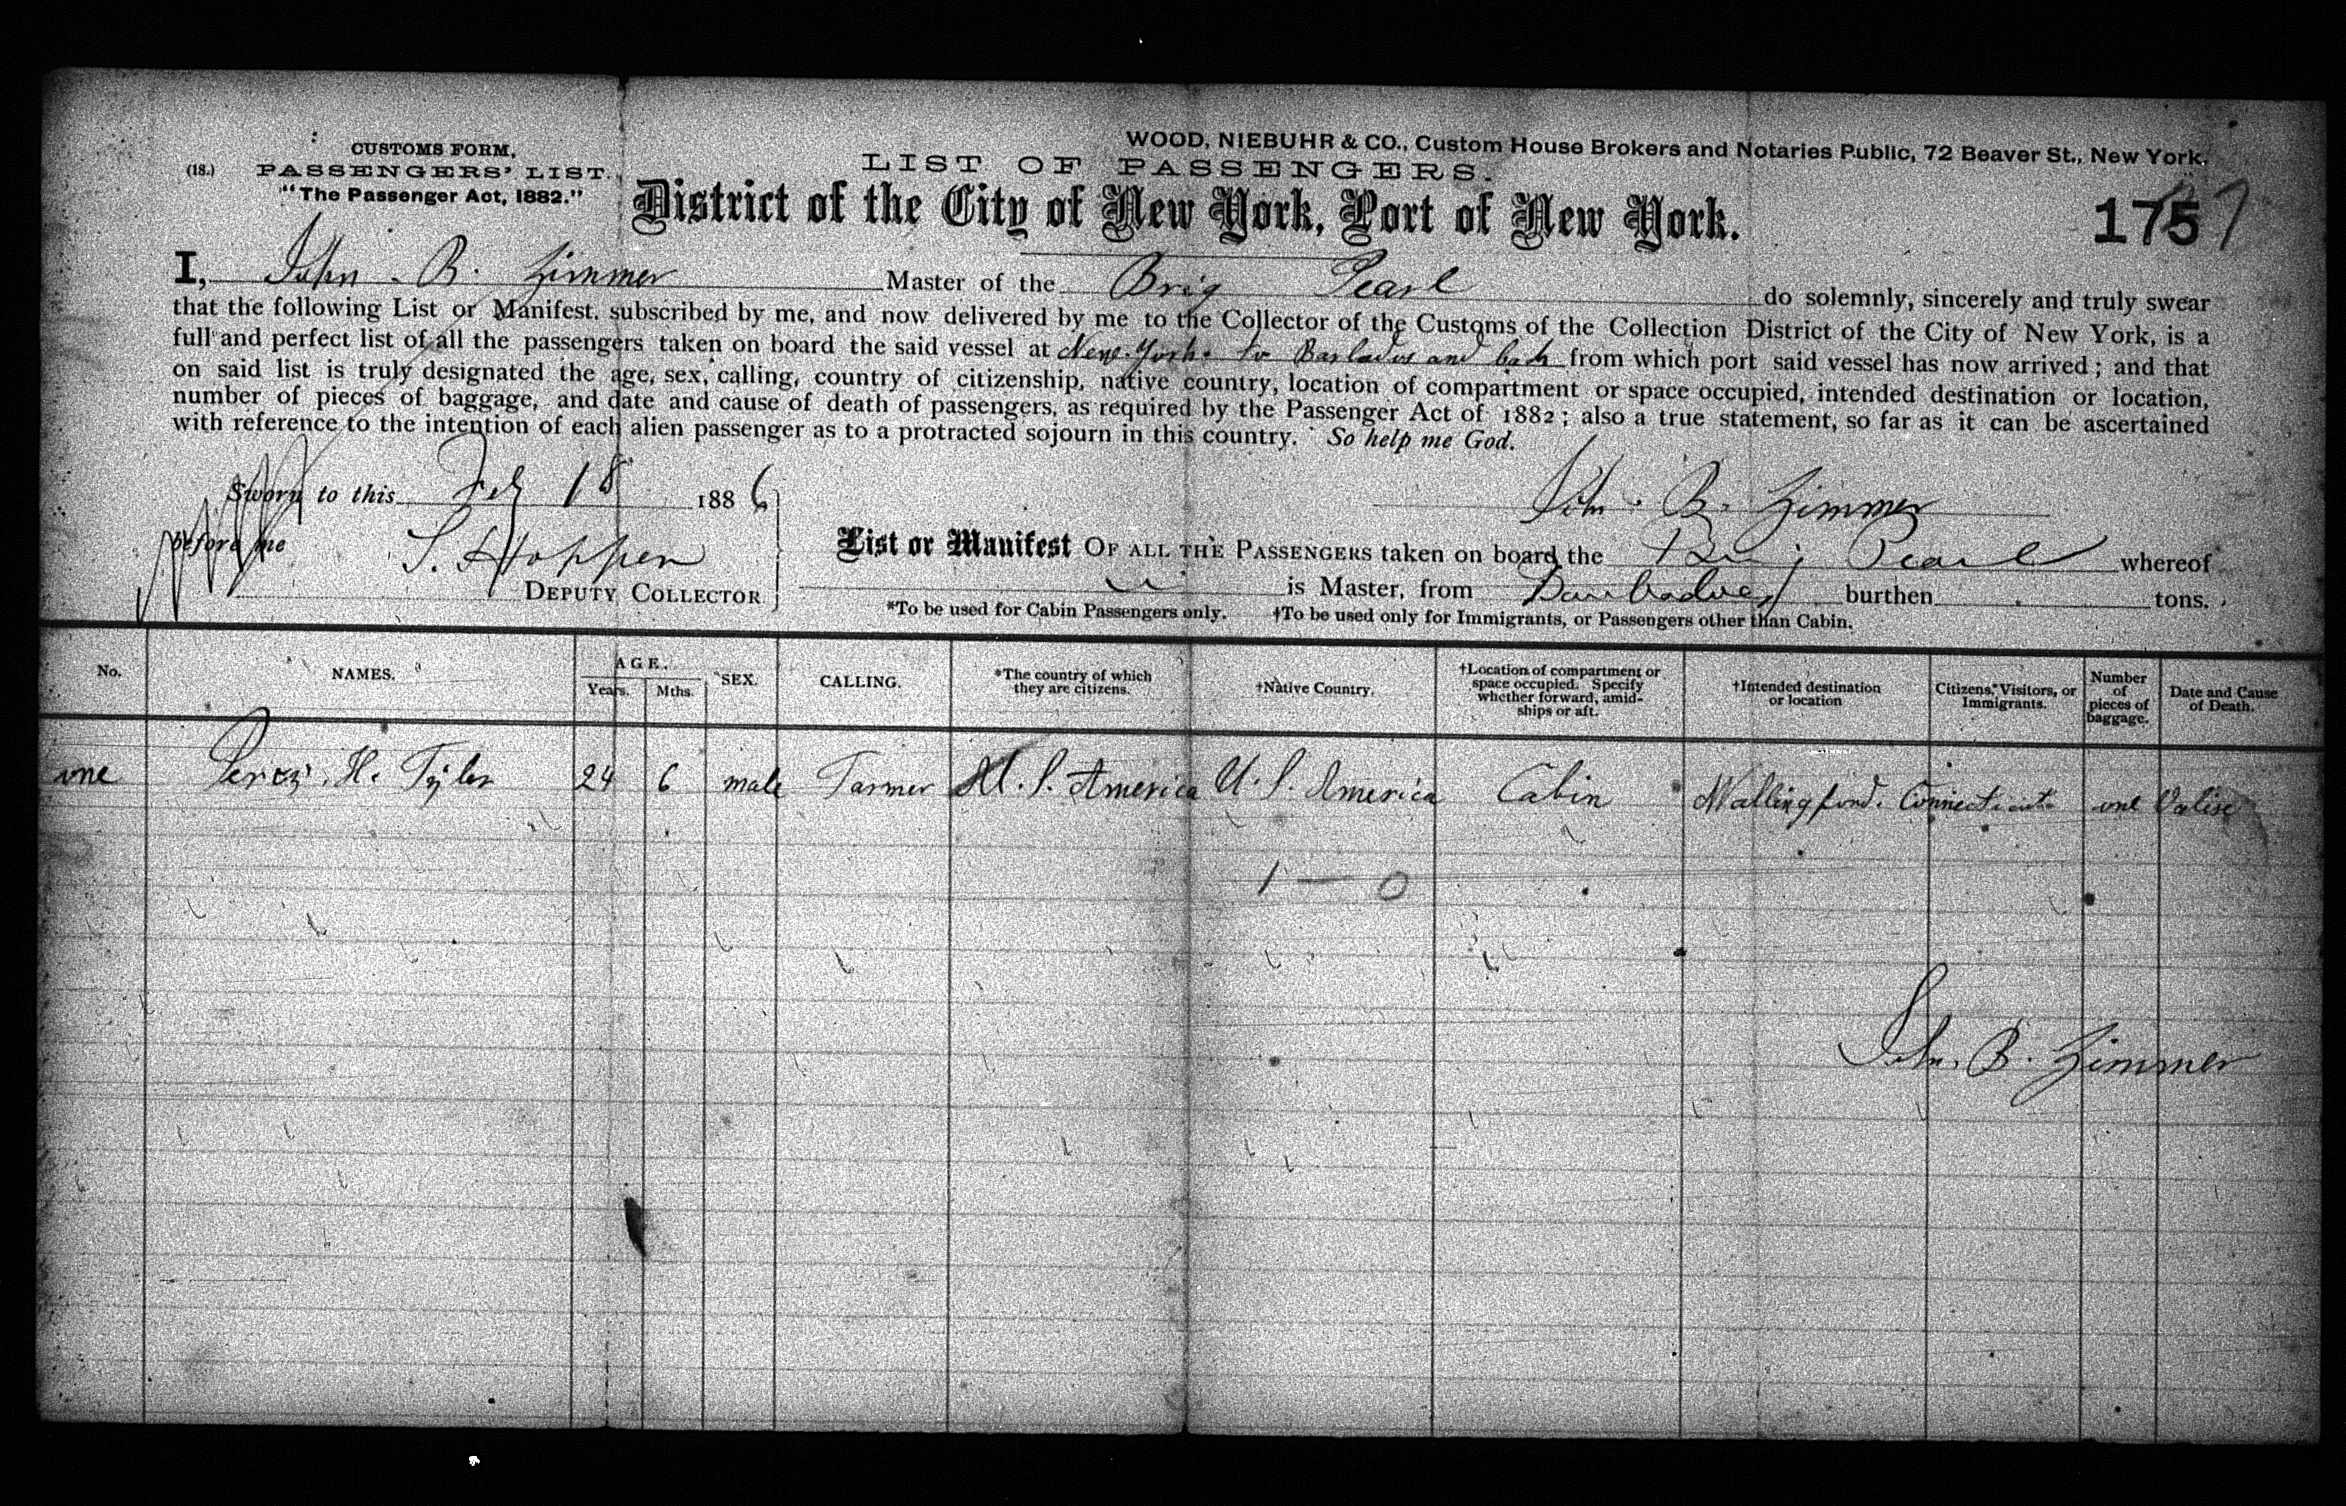 WOOD, NIEBUHR & CO., Custom House Brokers and Notaries Public, 72 Beaver St., New York.
CUSTOMS FORM,
(18.) PASSENGERS' LIST.
"The Passenger Act, 1882."
LIST OF PASSENGERS.
District of the City of New York, Port of New York.
175 7
I, John. B. Zimmer Master of the Brig Pearl do solemnly, sincerely and truly swear
that the following List or Manifest, subscribed by me, and now delivered by me to the Collector of the Customs of the Collection District of the City of New York, is a
full and perfect list of all the passengers taken on board the said vessel at New York. to Barbados and back from which port said vessel has now arrived; and that
on said list is truly designated the age, sex, calling, country of citizenship, native country, location of compartment or space occupied, intended destination or location,
number of pieces of baggage, and date and cause of death of passengers, as required by the Passenger Act of 1882; also a true statement, so far as it can be ascertained
with reference to the intention of each alien passenger as to a protracted sojourn in this country. So help me God.
Sworn to this Feb 18 1886
before me S. Hoppen
DEPUTY COLLECTOR
John. B. Zimmer
List or Manifest OF ALL THE PASSENGERS taken on board the Brig Pearl whereof
is Master, from Barbadoes burthen tons.
*To be used for Cabin Passengers only. †To be used only for Immigrants, or Passengers other than Cabin.
No. NAMES. AGE. Years. Mths. SEX. CALLING. *The country of which they are citizens. †Native Country. †Location of compartment or space occupied. Specify whether forward, amidships or aft. †Intended destination or location Citizens, Visitors, or Immigrants. Number of pieces of baggage. Date and Cause of Death.
one H. Tyler 24 6 male Farmer U. S. America U. S. America Cabin Wallingford. Connecticut one Valise
1 — 0
John. B. Zimmer